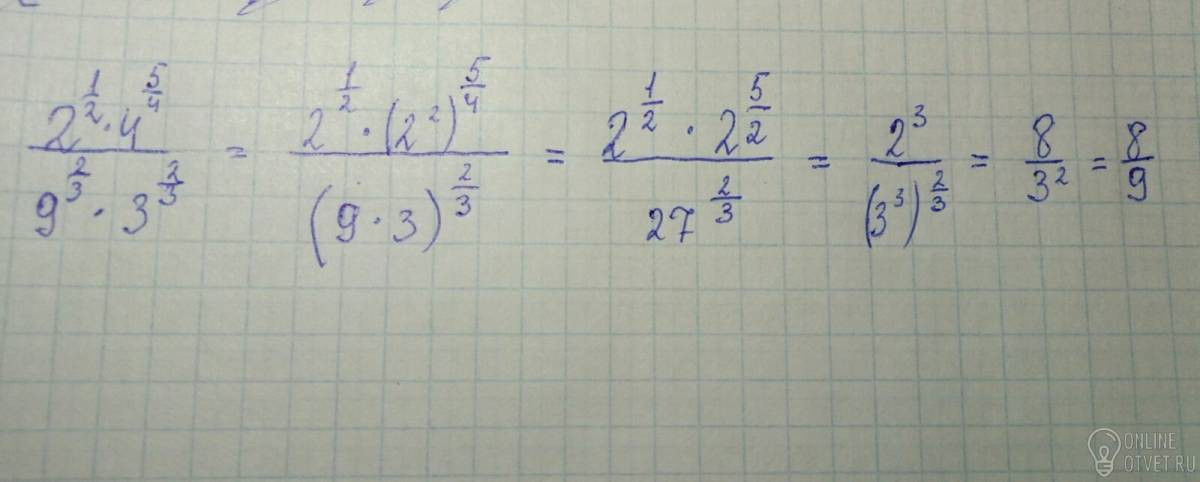 \frac{2^{\frac{1}{2}} \cdot 4^{\frac{5}{4}}}{9^{\frac{2}{3}} \cdot 3^{\frac{2}{3}}} = \frac{2^{\frac{1}{2}} \cdot (2^2)^{\frac{5}{4}}}{(9 \cdot 3)^{\frac{2}{3}}} = \frac{2^{\frac{1}{2}} \cdot 2^{\frac{5}{2}}}{27^{\frac{2}{3}}} = \frac{2^3}{(3^3)^{\frac{2}{3}}} = \frac{8}{3^2} = \frac{8}{9}
ONLINE
OTVET.RU